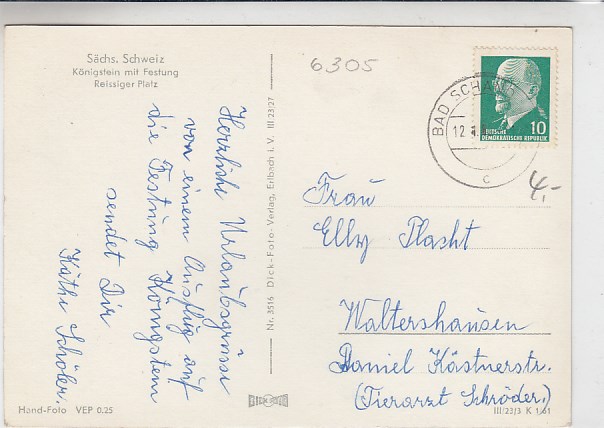 Sächs. Schweiz
Königstein mit Festung
Reissiger Platz
6305
BAD SCHAN
12.1
10
DEUTSCHE
DEMOKRATISCHE REPUBLIK
c
4,-
Herzliche Urlaubsgrüsse
von einem Ausflug auf
die Festung Königstein
sendet Dir
Käthe Schöler.
Nr. 3516 Dick-Foto-Verlag, Erlbach i. V. III 23/27
Frau
Elly Plasht
Waltershausen
Daniel Kästnerstr.
(Tierarzt Schröder.)
Hand-Foto VEP 0.25
DICK
III/23/3 K 1/61